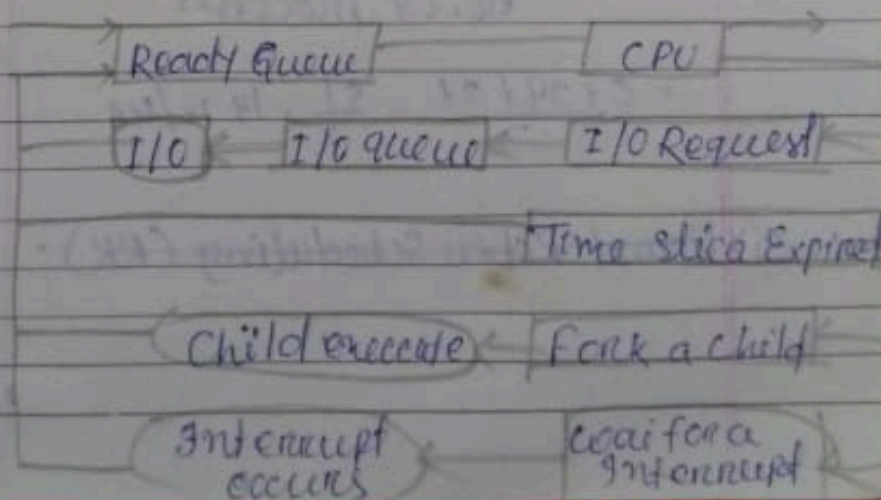 Ready Queue CPU
I/O I/O queue I/O Request
Time slice Expired
Child execute Fork a child
Interrupt occurs
wai for a Interrupt